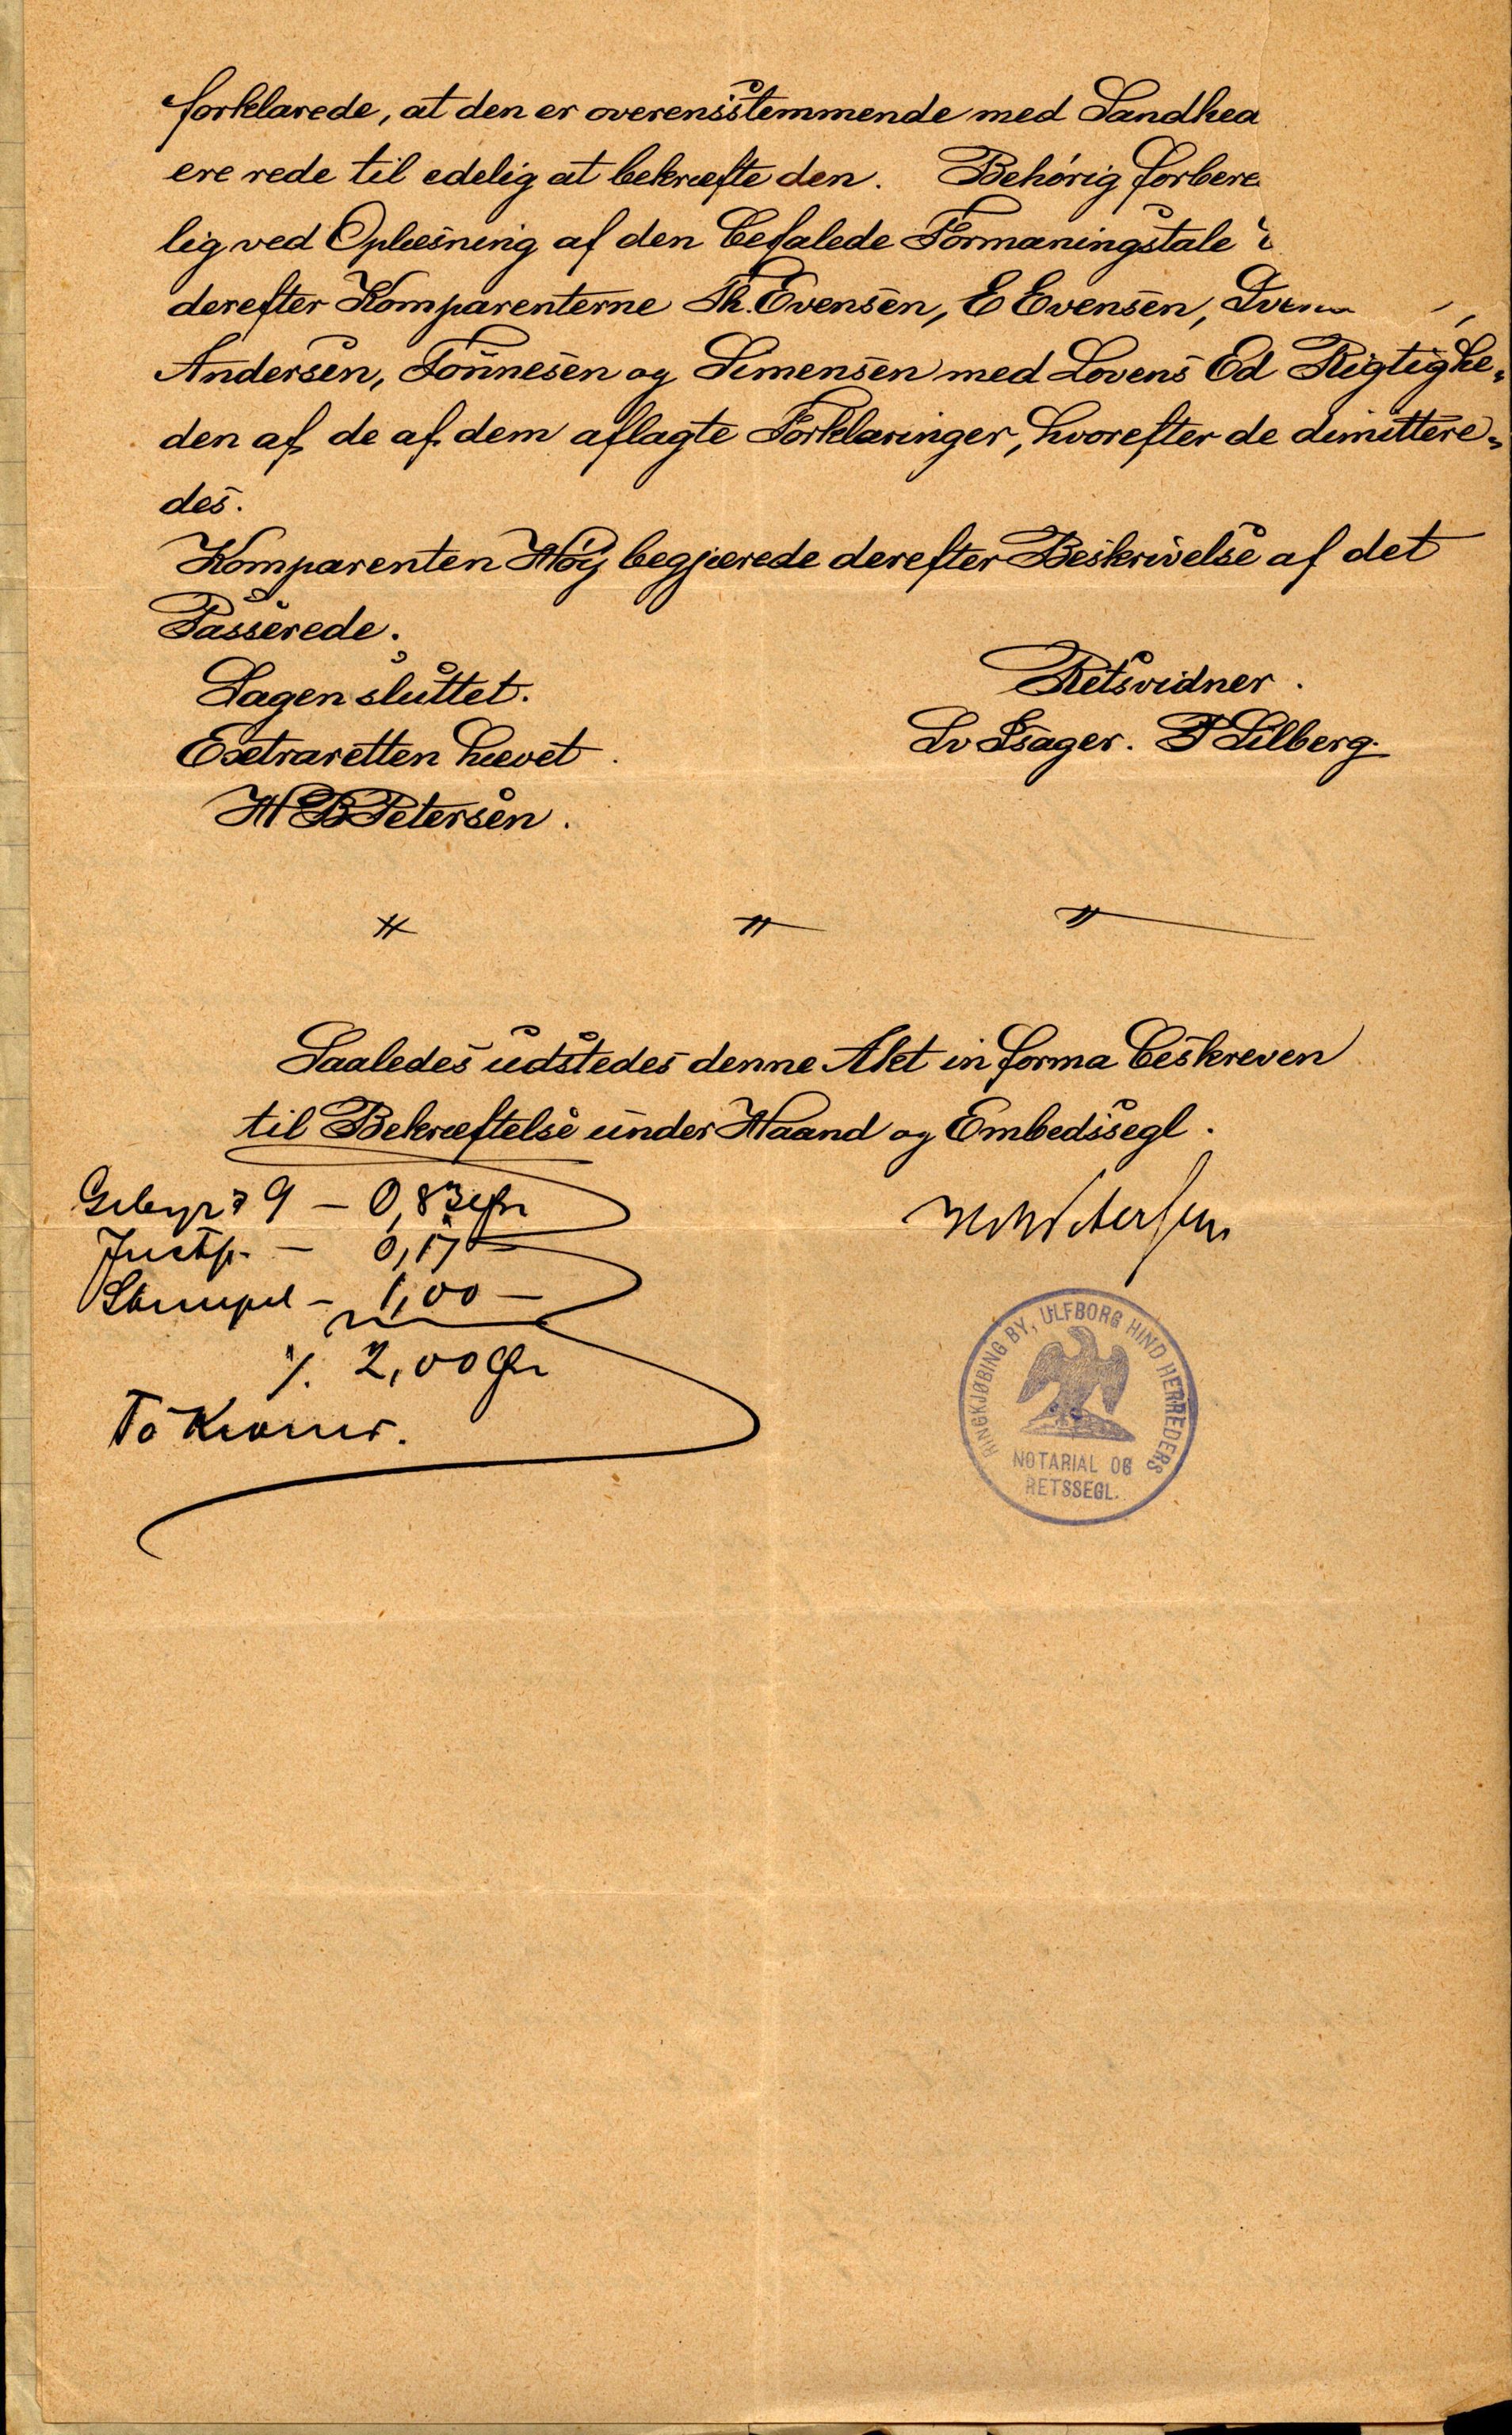 forklarede, at den er overensstemmende med Sandhed
ere rede til edelig at bekræfte den. Behørig forbere
lig ved Oplæsning af den befalede Formaningstale
derefter Komparenterne Th. Evensen, E Evensen,
Andersen, Tönnesen og Simensen med Lovens Ed Rigtighe-
den af de af dem aflagte Forklaringer, hvorefter de dimittere-
des.
Komparenten Høy begjærede derefter Beskrivelse af det
Passerede.
Sagen sluttet.
Retsvidner.
Extraretten hævet.
Lv Isager. P Lilberg.
H B Petersen.
Saaledes udstedes denne Akt in forma beskreven
til Bekræftelse under Haand og Embedssegl.
Gebyr 9 - 0,83
Justf. - 0,17 -
Stempel - 1,00 -
/. 2,00
To Kroner.
RINGKJØBING BY, ULFBORG HIND HERREDERS
NOTARIAL OG
RETSSEGL.